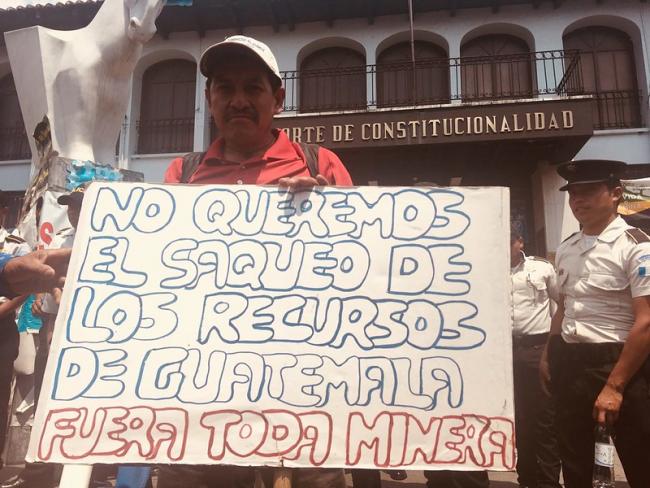 CORTE DE CONSTITUCIONALIDAD
NO QUEREMOS
EL SAQUEO DE
LOS RECURSOS
DE GUATEMALA
FUERA TODA MINERA